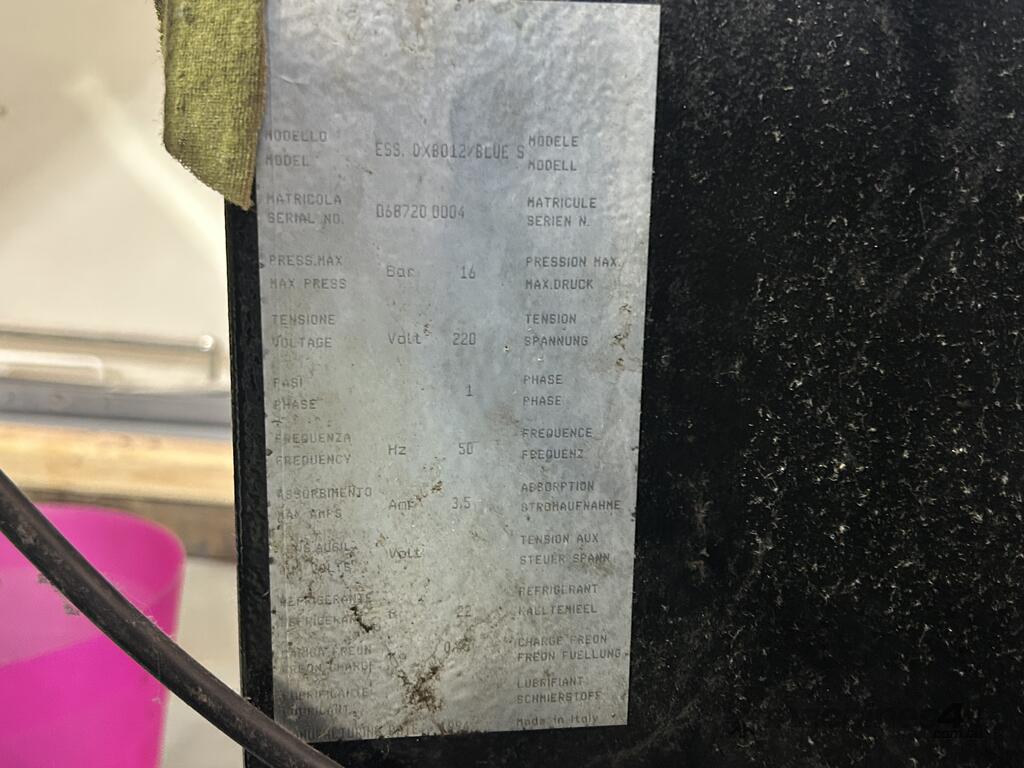 MODELLO
MODEL
ESS. DXB012/BLUE S
MODELE
MODELL
MATRICOLA
SERIAL NO.
068720 0004
MATRICULE
SERIEN N.
PRESS.MAX
MAX PRESS
Bar 16
PRESSION MAX.
MAX.DRUCK
TENSIONE
VOLTAGE
Volt 220
TENSION
SPANNUNG
FASI
PHASE
1
PHASE
PHASE
FREQUENZA
FREQUENCY
Hz 50
FREQUENCE
FREQUENZ
ASSORBIMENTO
MAX AMPS
Amp 3,5
ABSORPTION
STROMAUFNAHME
AUSIL.
VOLTS
Volt
TENSION AUX
STEUER SPANN
REFRIGERANTE
R 22
REFRIGERANT
FREON
FREON CHARGE
CHARGE FREON
FREON FUELLUNG
LUBRIFICANTE
LUBRIFIANT
SCHMIERSTOFF
MANUFACTURING DATE
Made in Italy